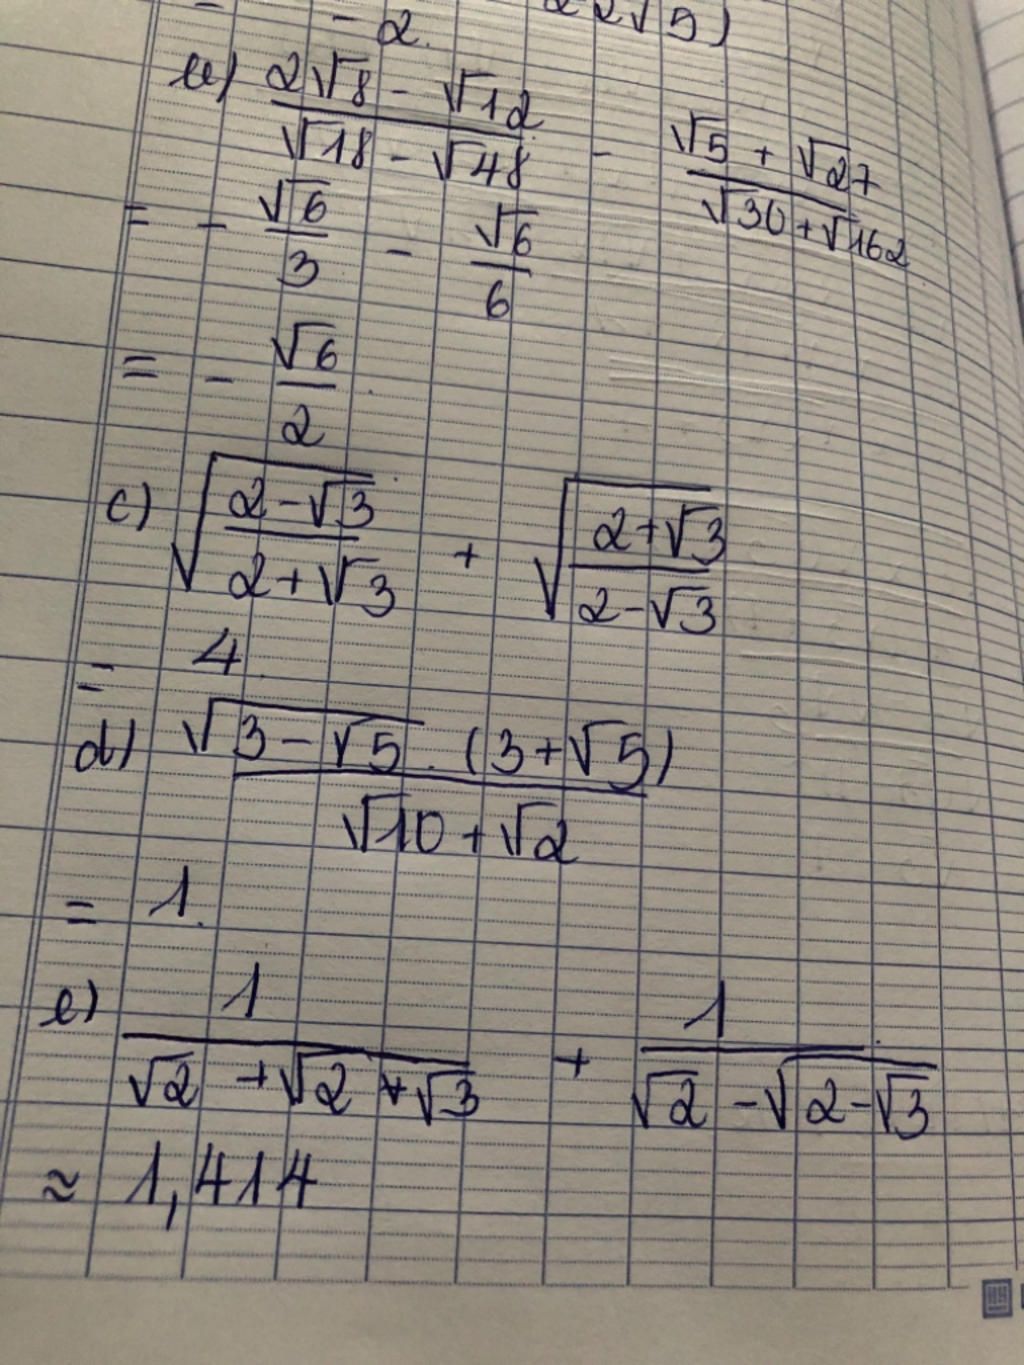 - 2. 2√5)
b) (2√8 - √12)/(√18 - √48) - (√5 + √27)/(√30 + √162)
= - √6/3 - √6/6
= - √6/2
c) √((2-√3)/(2+√3)) + √((2+√3)/(2-√3))
= 4
d) (√(3-√5) . (3+√5))/(√10 + √2)
= 1.
e) 1/(√2 + √(2+√3)) + 1/(√2 - √(2-√3))
≈ 1,414